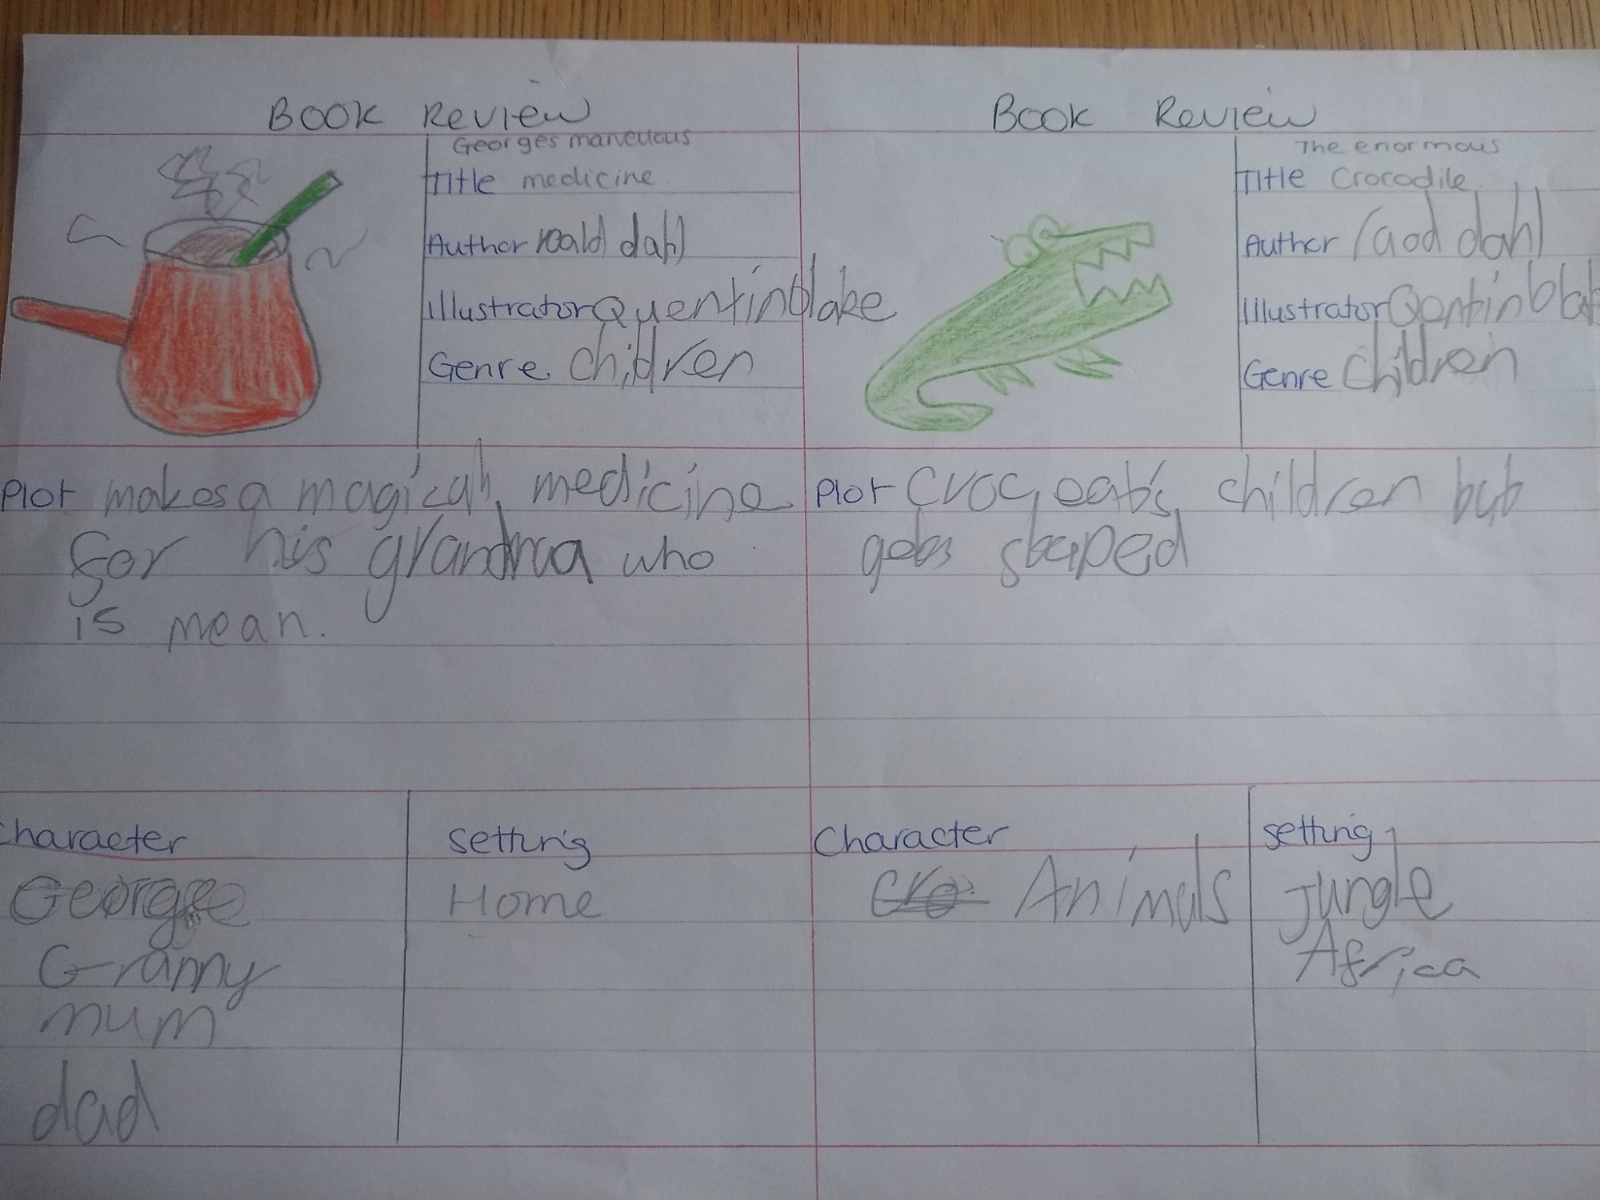 Book Review
Georges marvellous
Title medicine
Author roald dahl
Illustrator Quentin blake
Genre children
Plot makes a magical medicine
for his grandma who
is mean.
Character
George
Granny
mum
dad
Setting
Home
Book Review
The enormous
Title Crocodile
Author raod dahl
Illustrator Qentin blak
Genre children
Plot Croc eats children but
gets stoped
Character
Cro Animals
Setting
Jungle
Africa